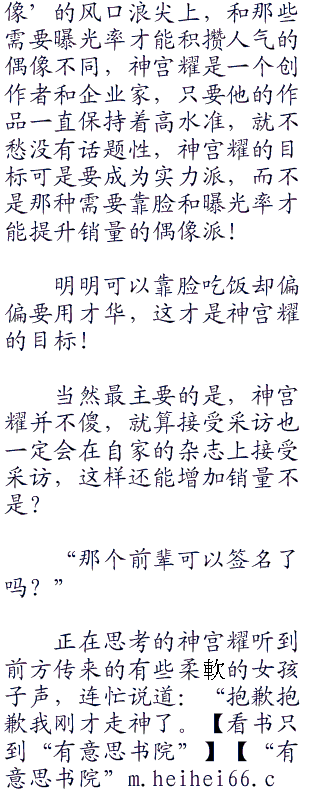 像’的风口浪尖上，和那些
需要曝光率才能积攒人气的
偶像不同，神宫耀是一个创
作者和企业家，只要他的作
品一直保持着高水准，就不
愁没有话题性，神宫耀的目
标可是要成为实力派，而不
是那种需要靠脸和曝光率才
能提升销量的偶像派！
明明可以靠脸吃饭却偏
偏要用才华，这才是神宫耀
的目标！
当然最主要的是，神宫
耀并不傻，就算接受采访也
一定会在自家的杂志上接受
采访，这样还能增加销量不
是？
“那个前辈可以签名了
吗？”
正在思考的神宫耀听到
前方传来的有些柔軟的女孩
子声，连忙说道：“抱歉抱
歉我刚才走神了。【看书只
到“有意思书院”】【“有
意思书院”m.heihei66.c